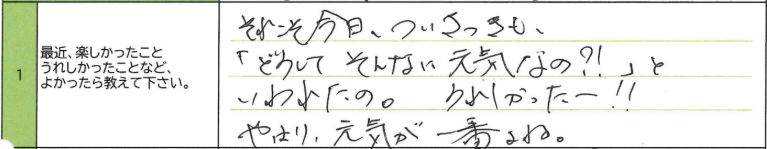 1
最近、楽しかったこと
うれしかったことなど、
よかったら教えて下さい。
それこそ今日、ついさっきも、
「どうして そんなに 元気なの?!」と
いわれたの。 うれしかったー!!
やはり、元気が 一番よね。